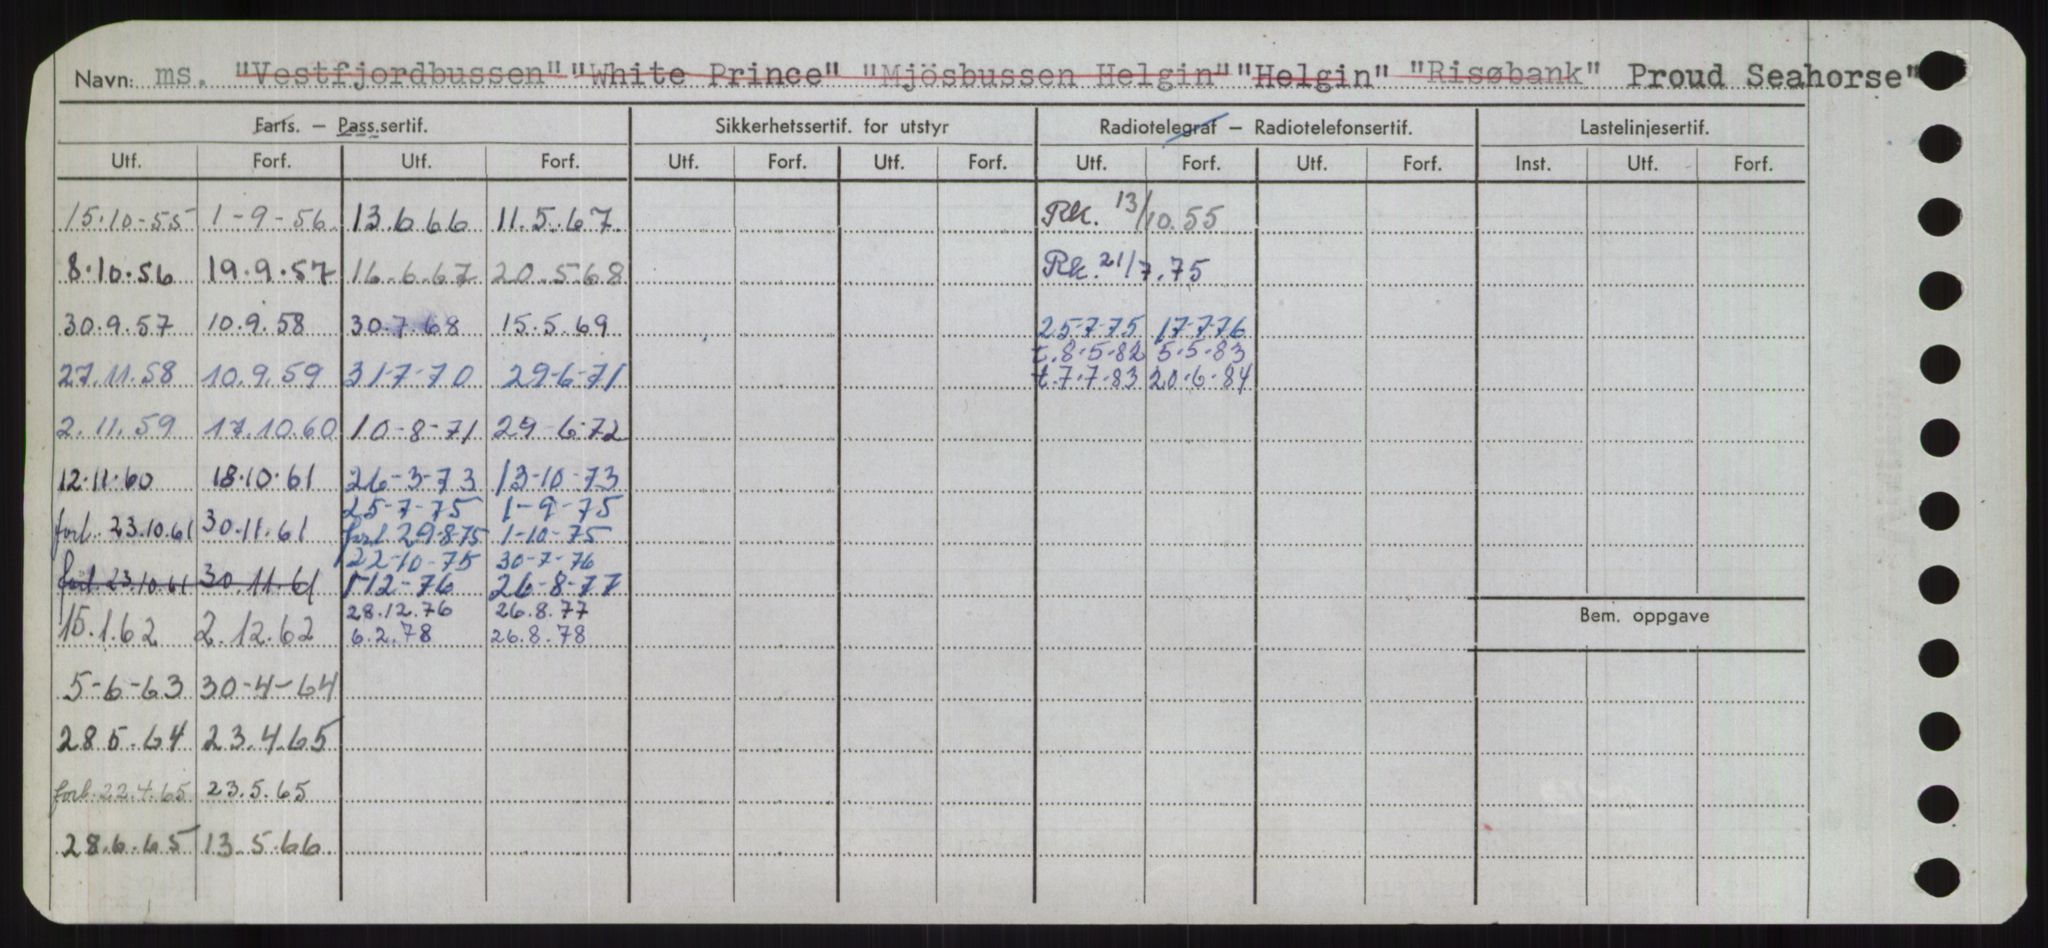 Navn: ms. "Vestfjordbussen" "White Prince" "Mjösbussen Helgin" "Helgin" "Risøbank" Proud Seahorse"
Farts. – Pass.sertif. Sikkerhetssertif. for utstyr Radiotelegraf – Radiotelefonsertif. Lastelinjesertif.
Utf. Forf. Utf. Forf. Utf. Forf. Utf. Forf. Utf. Forf. Utf. Forf. Inst. Utf. Forf.
15-10-55 1-9-56 13.6 66 11.5.67 Rk. 13/10.55
8.10.56 19.9.57 16.6.67 20.5.68 Rk. 21/7.75
30.9.57 10.9.58 30.7.68 15.5.69 25-7-75 17-7-76
t.8.5.82 5.5.83
27.11.58 10.9.59 31-7-70 29-6-71 t.7.7.83 20.6.84
2.11.59 17.10.60 10-8-71 29-6-72
12.11.60 18.10.61 26-3-73 13-10-73
25-7-75 1-9-75
forl. 23.10.61 30.11.61 forl 29-8-75 1-10-75
22-10-75 30-7-76
forl. 23.10.61 30.11.61 1-12-76 26-8-77
28.12.76 26.8.77
Bem. oppgave
15.1.62 2.12.62 6.2.78 26.8.78
5-6-63 30-4-64
28 5.64 23.4.65
forl. 22.4.65 23.5.65
28.6.65 13.5.66